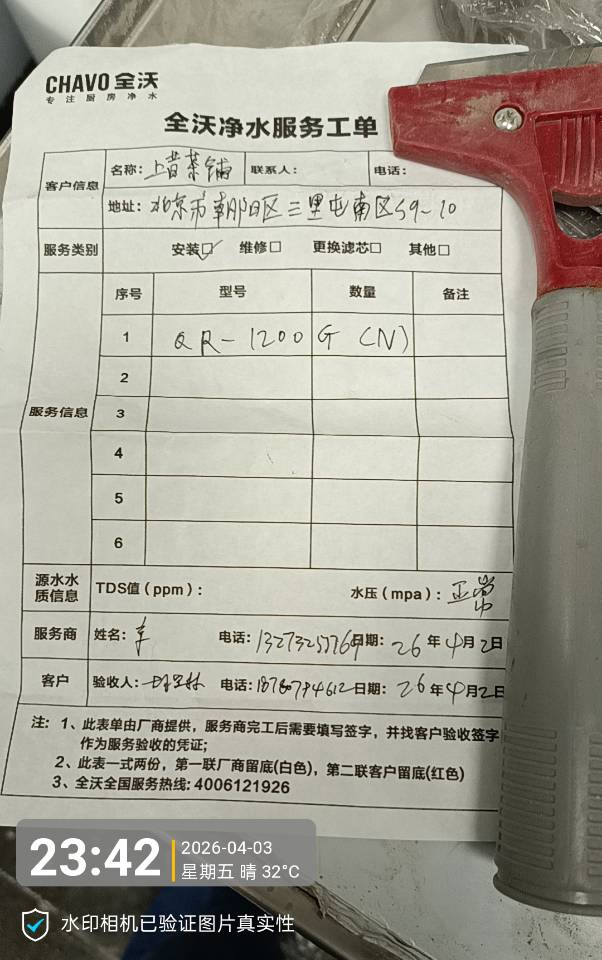 CHAVO 全沃
专注厨房净水
全沃净水服务工单
客户信息
名称：上昔茶铺 联系人： 电话：
地址：北京市朝阳区三里屯南区S9-10
服务类别 安装☑ 维修□ 更换滤芯□ 其他□
服务信息
序号 型号 数量 备注
1 QR-1200G (N)
2
3
4
5
6
源水水质信息 TDS值（ppm）： 水压（mpa）：正常
服务商 姓名： 电话： 日期：26年4月2日
客户 验收人： 电话：18780794612 日期：26年4月2日
注：1、此表单由厂商提供，服务商完工后需要填写签字，并找客户验收签字
作为服务验收的凭证；
2、此表一式两份，第一联厂商留底(白色)，第二联客户留底(红色)
3、全沃全国服务热线：4006121926
23:42 2026-04-03
星期五 晴 32°C
水印相机已验证图片真实性